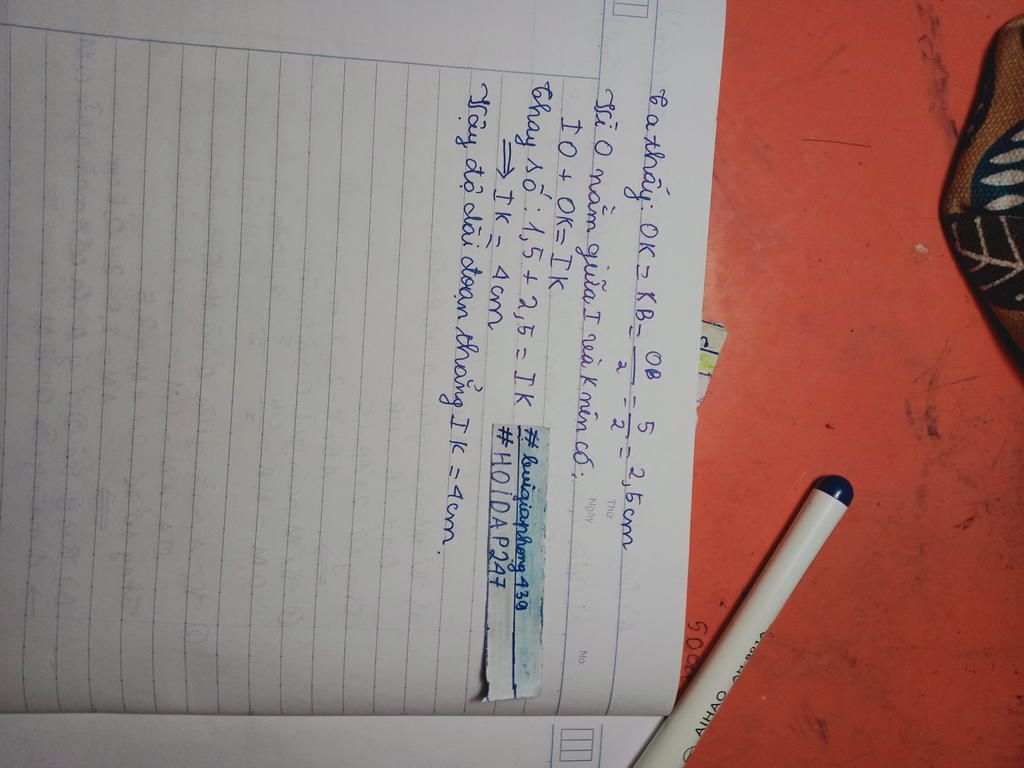 Ta thấy: OK = KB = OB/2 = 5/2 = 2,5 cm
Vì O nằm giữa I và K nên có:
IO + OK = IK
Thay số: 1,5 + 2,5 = IK
⇒ IK = 4cm
Vậy độ dài đoạn thẳng IK = 4cm.
#buigiaphong439
#HOIDAP247
Thứ
Ngày
No
AIHAO